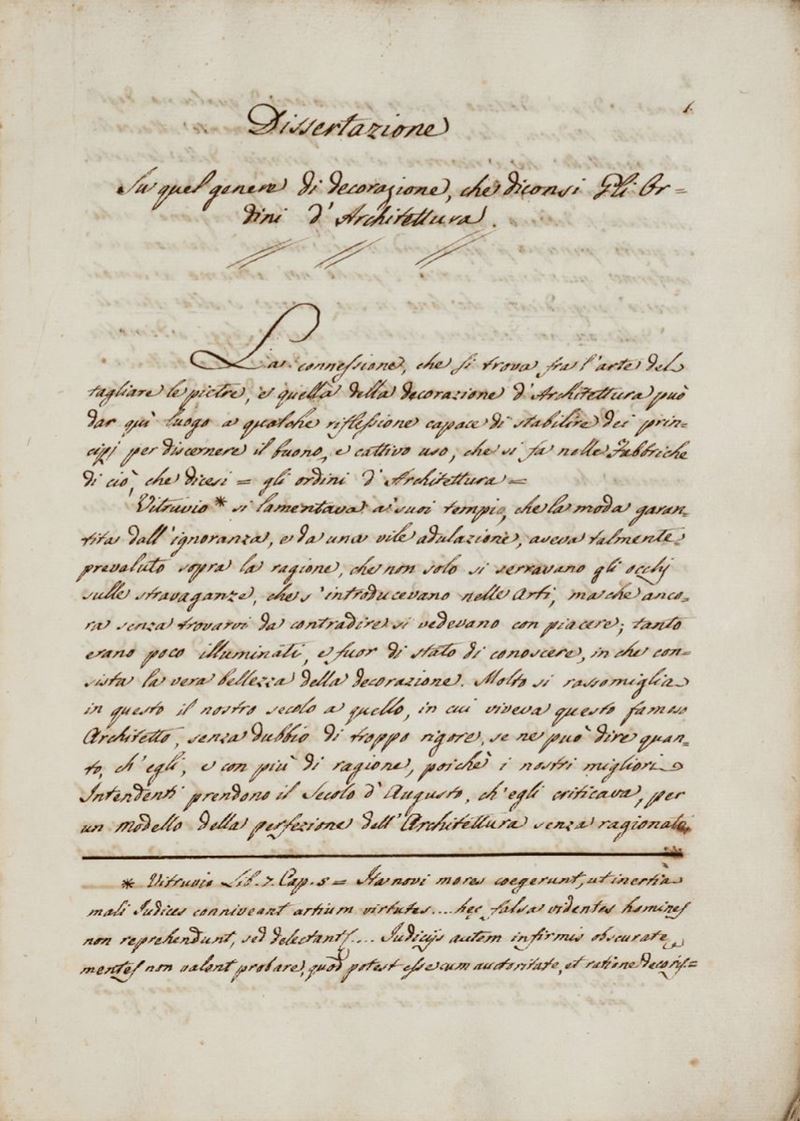 1.
Dissertazione
Su quel genere di decorazione, che diconsi Gli Or=
dini d'Architettura.
La connessione, che si trova fra l'arte del
tagliare le pietre, e quella della decorazione d'Architettura può
dar quì luogo a qualche riflessione capace di stabilire dei prin=
cipj per discernere il buono, e cattivo uso, che si fa nelle Fabbriche
di ciò, che dicesi = gli ordini d'Architettura =
Vitruvio * si lamentava a' suoi tempi, che la moda garan=
tita dall'ignoranza, e da una vile adulazione, aveva talmente
prevaluto sopra la ragione, che non solo si serravano gli occhj
sulle stravaganze, che s'introducevano nelle Arti, ma che anco=
ra senza trovarvi da contradire si vedevano con piacere; tanto
erano poco illuminati, e fuor di stato di conoscere, in che con=
sista la vera bellezza della decorazione. Molto si rassomiglia
in questo il nostro secolo a quello, in cui viveva questo famoso
Architetto, senza dubbio di troppo rigore, se ne può dire quan=
to, ch'egli, e con più di ragione, poichè i nostri migliori
Intendenti prendono il Secolo d'Augusto, ch'egli criticava, per
un modello della perfezione dell'Architettura senza ragionale,
* Vitruvio Lib. 7. Cap. 5 = Ita novi mores coegerunt, ut inertia
mali Iudices conniveant artium virtutes .... hęc falsa videntes homines
non reprehendunt, sed delectant .... Iudicijs autem infirmis obscurate
mentes non valent probare, quod potest esse cum auctoritate, et ratione decoris=